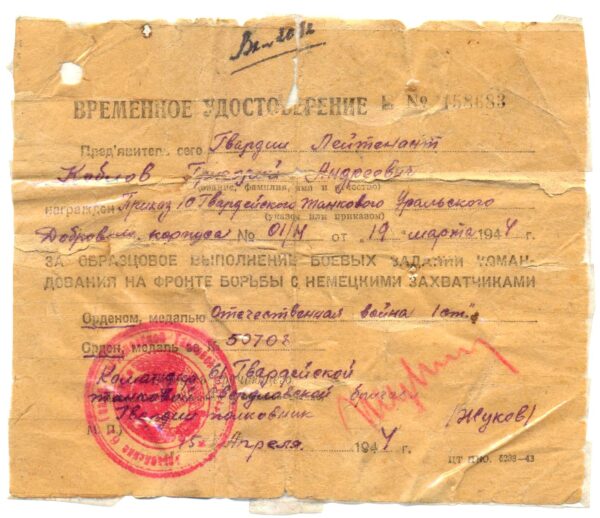 ВРЕМЕННОЕ УДОСТОВЕРЕНИЕ № 158683
Пред'явитель сего Гвардии Лейтенант
Андреевич
(звание, фамилия, имя и отчество)
награжден Приказ 10 Гвардейского Танкового Уральского
(указом или приказом)
Добровол. корпуса № 01/Н от "19" марта 1944 г.
ЗА ОБРАЗЦОВОЕ ВЫПОЛНЕНИЕ БОЕВЫХ ЗАДАНИЙ КОМАН-
ДОВАНИЯ НА ФРОНТЕ БОРЬБЫ С НЕМЕЦКИМИ ЗАХВАТЧИКАМИ
Орденом, медалью Отечественная война 1 ст"
Орден, медаль за № 50702
Командир 61 Гвардейской
танковой Свердловской бригады
Гвардии полковник /Жуков/
М. П.
"15" Апреля 1944 г.